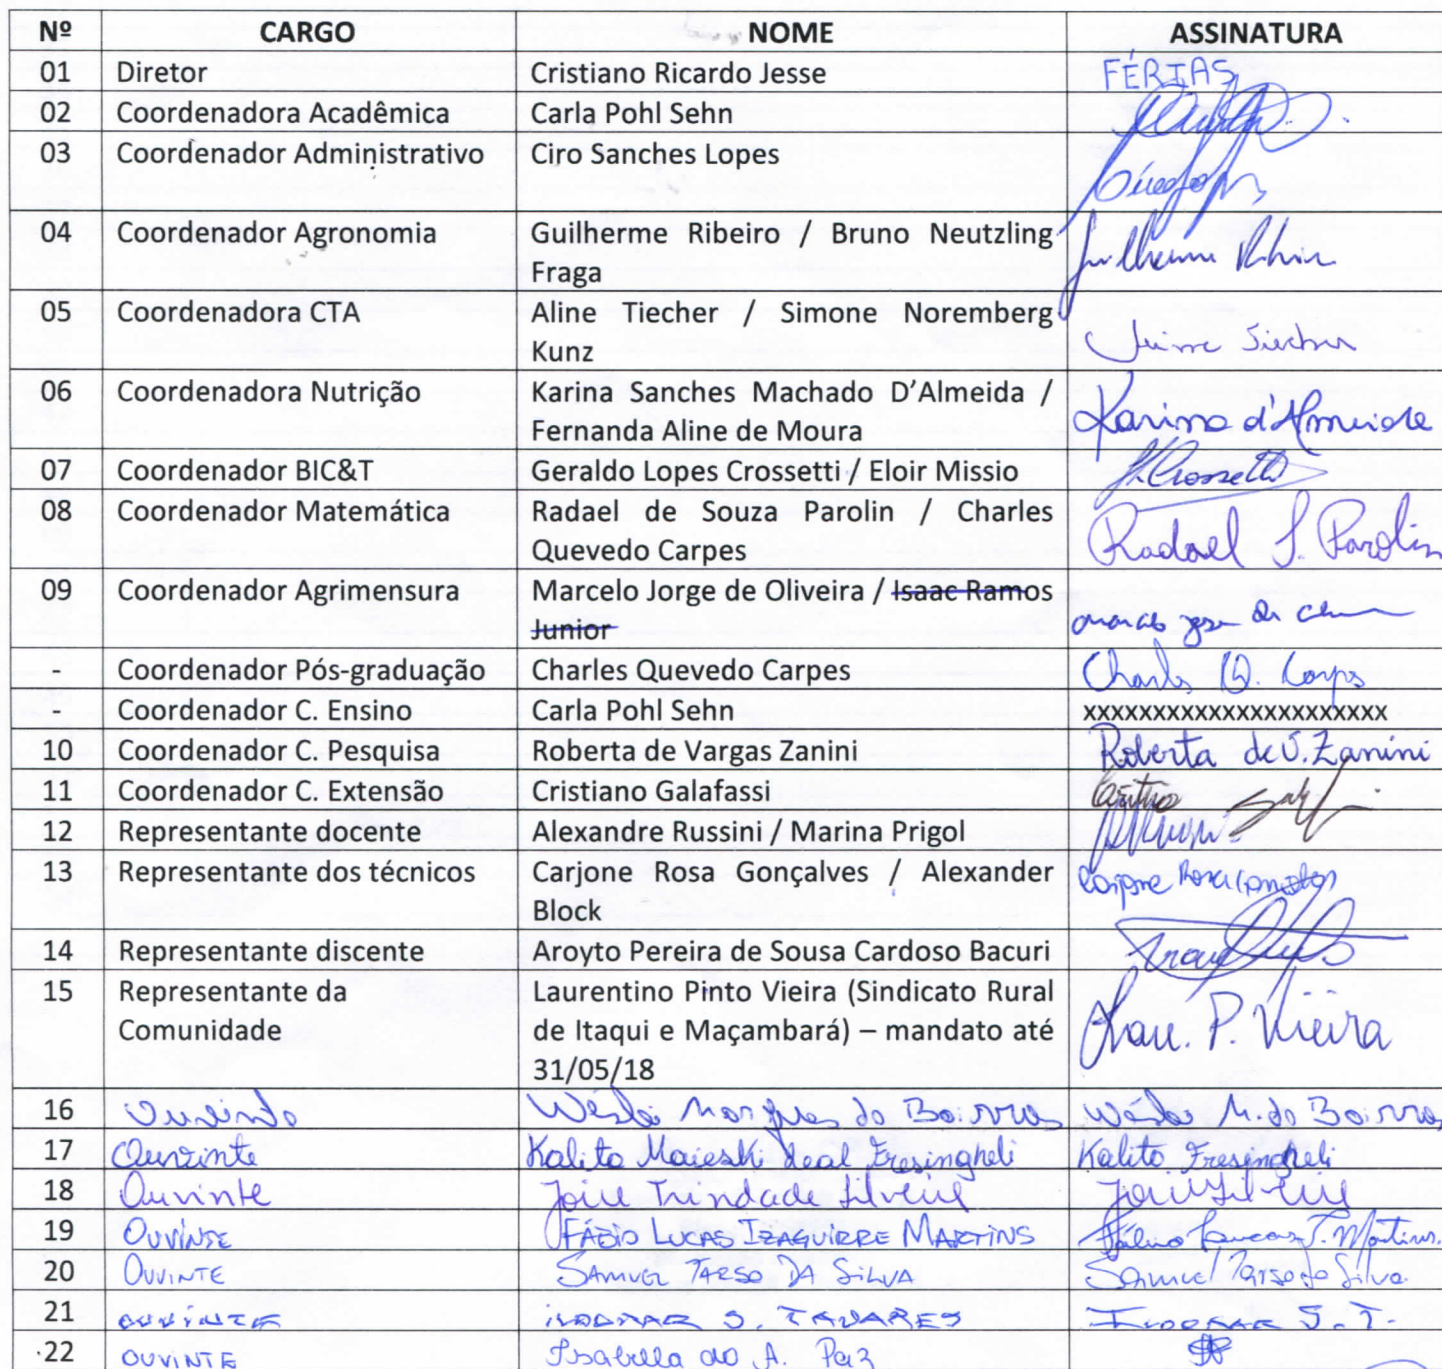 Nº CARGO NOME ASSINATURA
01 Diretor Cristiano Ricardo Jesse FÉRIAS
02 Coordenadora Acadêmica Carla Pohl Sehn
03 Coordenador Administrativo Ciro Sanches Lopes
04 Coordenador Agronomia Guilherme Ribeiro / Bruno Neutzling Guilherme Ribeiro
Fraga
05 Coordenadora CTA Aline Tiecher / Simone Noremberg
Kunz
06 Coordenadora Nutrição Karina Sanches Machado D'Almeida / Karina d'Almeida
Fernanda Aline de Moura
07 Coordenador BIC&T Geraldo Lopes Crossetti / Eloir Missio Crossetti
08 Coordenador Matemática Radael de Souza Parolin / Charles Radael S. Parolin
Quevedo Carpes
09 Coordenador Agrimensura Marcelo Jorge de Oliveira / Isaac Ramos
Junior
- Coordenador Pós-graduação Charles Quevedo Carpes Charles Q. Carpes
- Coordenador C. Ensino Carla Pohl Sehn xxxxxxxxxxxxxxxxxxxxxx
10 Coordenador C. Pesquisa Roberta de Vargas Zanini Roberta de V. Zanini
11 Coordenador C. Extensão Cristiano Galafassi
12 Representante docente Alexandre Russini / Marina Prigol
13 Representante dos técnicos Carjone Rosa Gonçalves / Alexander Carjone Rosa Gonçalves
Block
14 Representante discente Aroyto Pereira de Sousa Cardoso Bacuri
15 Representante da Laurentino Pinto Vieira (Sindicato Rural Lau. P. Vieira
Comunidade de Itaqui e Maçambará) – mandato até
31/05/18
16 Marques do
17 Ouvinte Kalito Maieski Leal Fresingheli Kalito Fresingheli
18 Ouvinte Joice Trindade Silveira
19 OUVINTE FÁBIO LUCAS IZAGUIRRE MARTINS Fábio Lucas I. Martins.
20 OUVINTE SAMUEL TARSO DA SILVA Samuel Tarso da Silva
21 OUVINTE S. TAVARES
22 OUVINTE Isabella do A. Paz